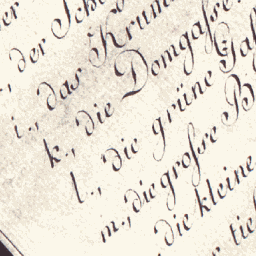 der
der
i., das Krum
k., die Domgasse
l., die grüne Gas
m., die grosse B
die kleine
tie